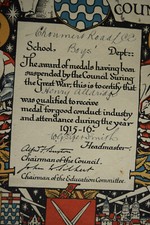 Chaumers Road LCC
School. Boys' Dept:-
The award of medals having been
suspended by the Council during
the Great War; this is to certify that
Henry Aldridge
was qualified to receive
medal for good conduct; industry
and attendance during the year
1915-16
Smith
Headmaster.
Chairman of the Council.
John
Chairman of the Education Committee.